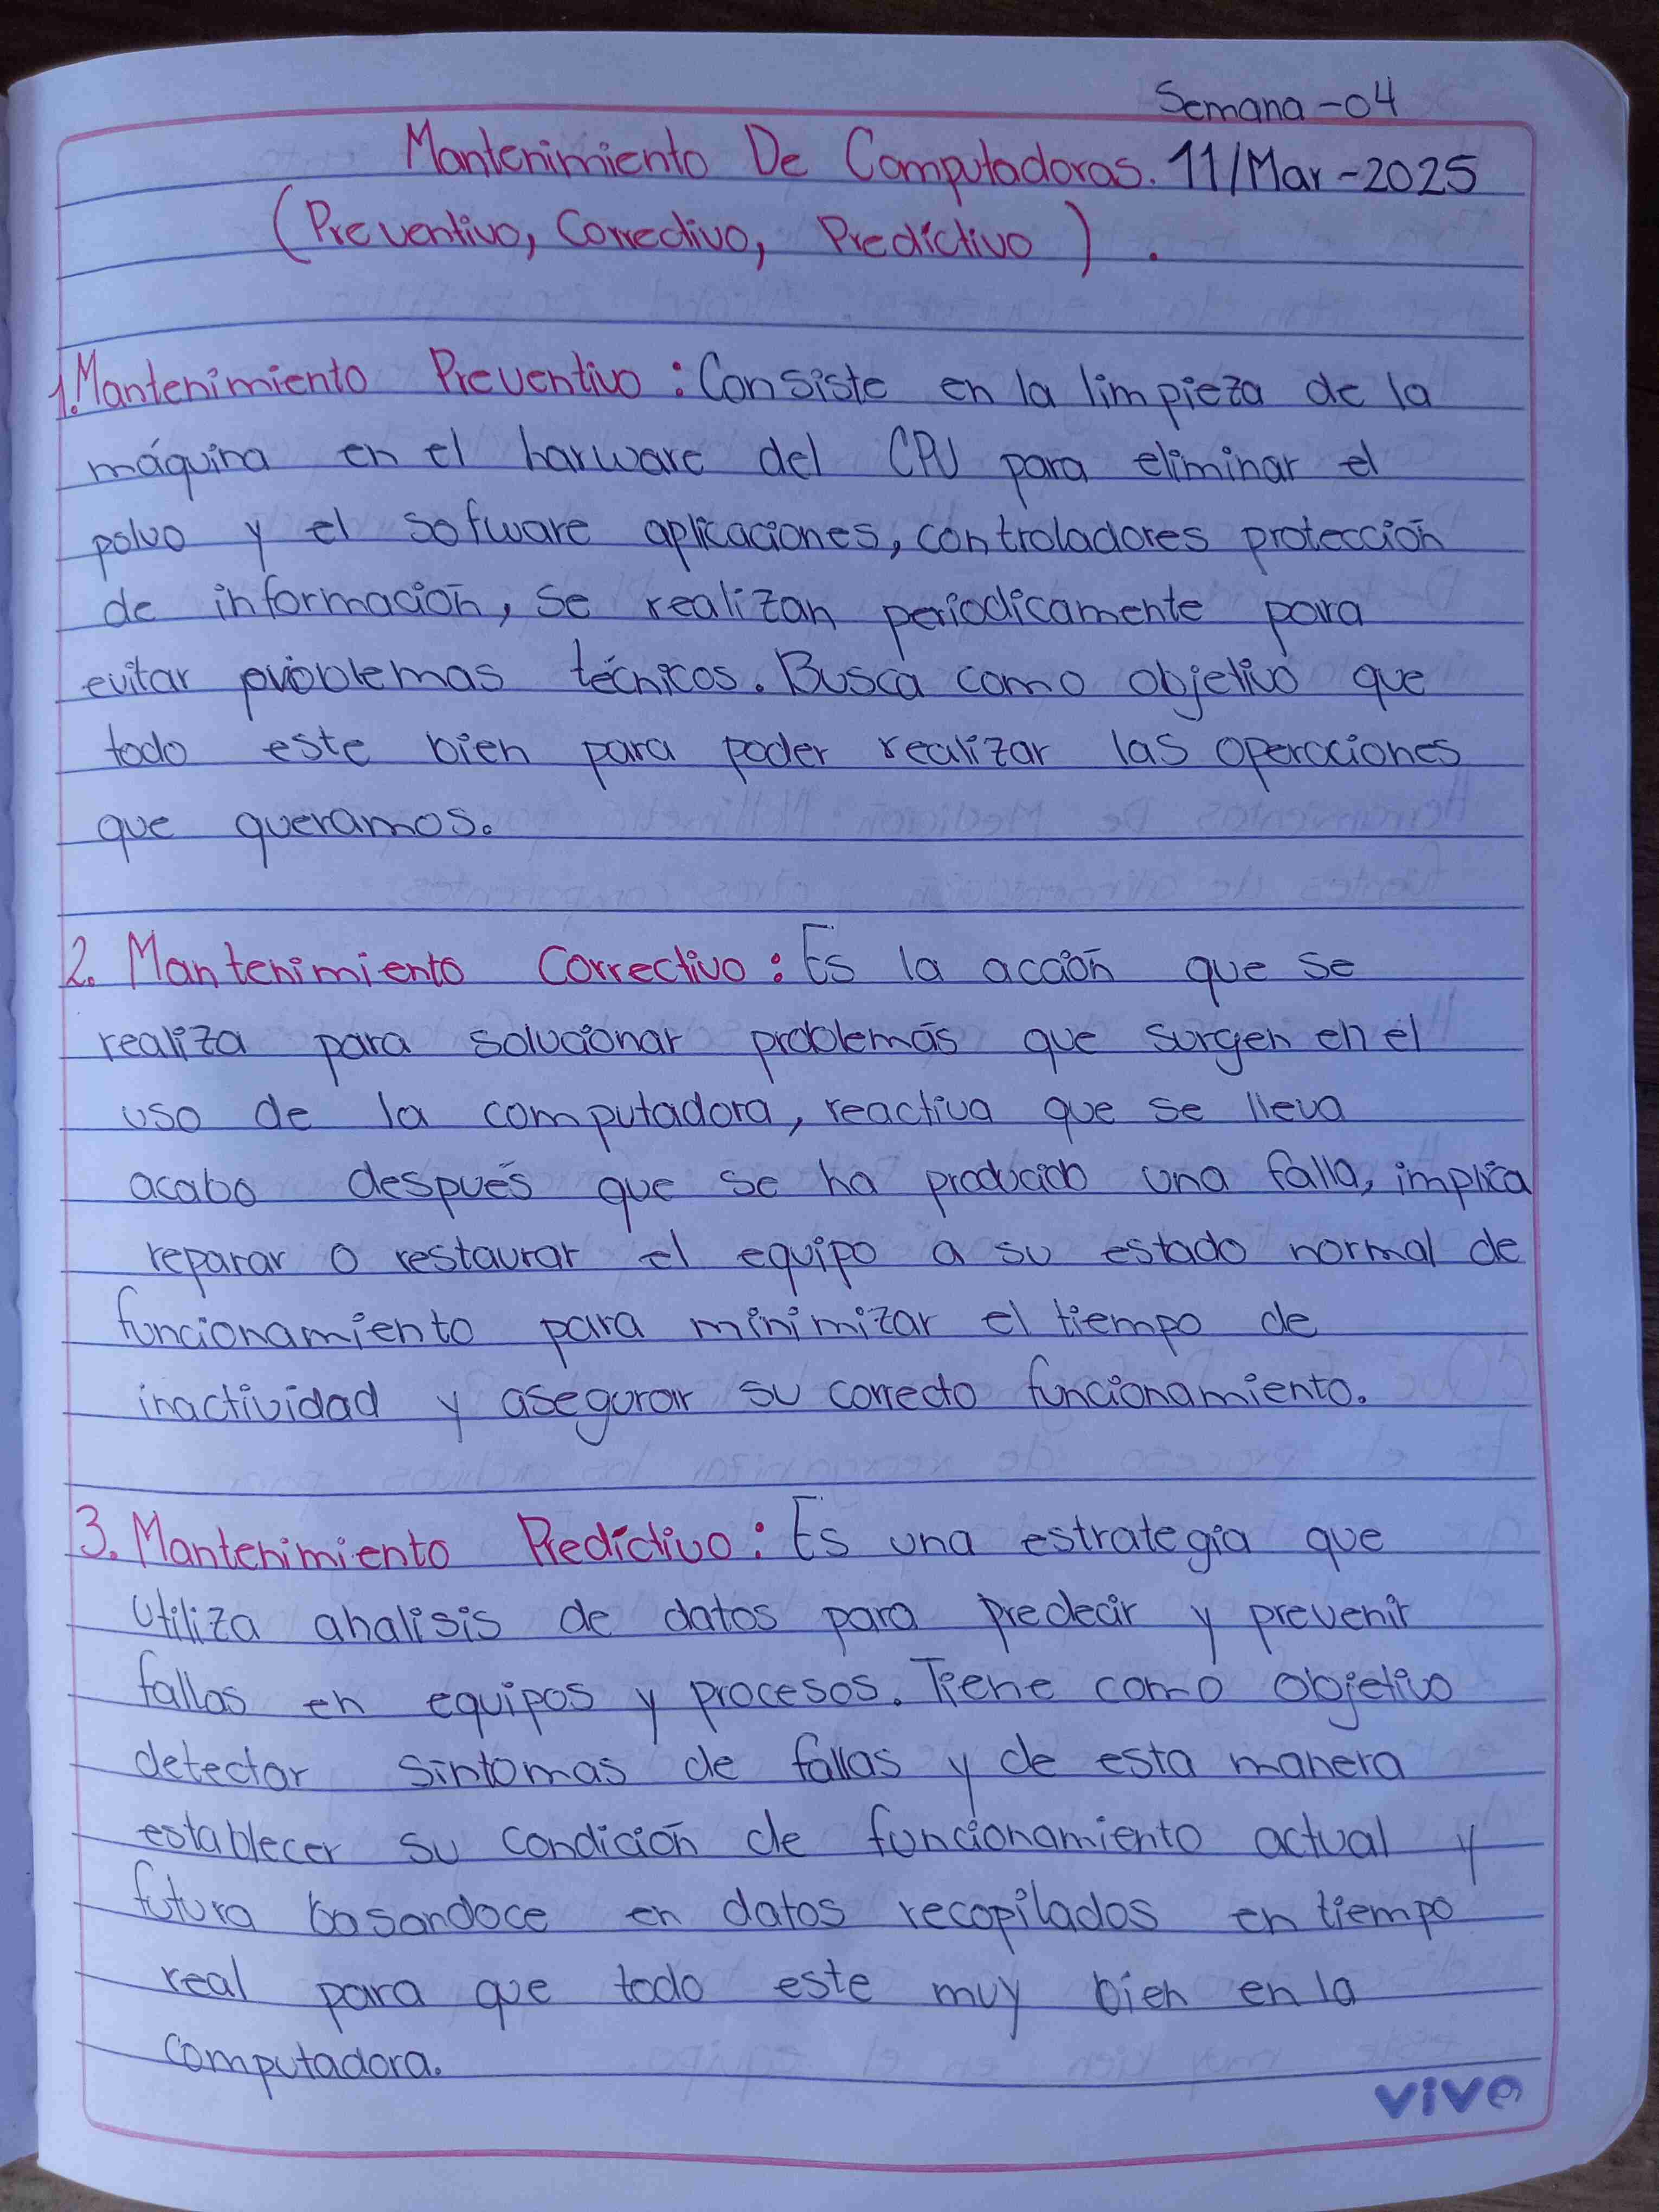 Semana-04
Mantenimiento De Computadoras. 11/Mar-2025
(Preventivo, Correctivo, Predíctivo).
1. Mantenimiento Preventivo: Consiste en la limpieza de la
máquina en el harware del CPU para eliminar el
polvo y el sofware aplicaciones, controladores protección
de información, se realizan periodicamente para
evitar problemas técnicos. Busca como objetivo que
todo este bien para poder realizar las operaciones
que queramos.
2. Mantenimiento Correctivo: Es la acción que se
realiza para solucionar problemás que surgen en el
uso de la computadora, reactiva que se lleva
acabo después que se ha producido una falla, implica
reparar o restaurar el equipo a su estado normal de
funcionamiento para minimizar el tiempo de
inactividad y asegurar su correcto funcionamiento.
3. Mantenimiento Predíctivo: Es una estrategia que
utiliza analisis de datos para predecir y prevenir
fallas en equipos y procesos. Tiene como objetivo
detectar sintomas de fallas y de esta manera
establecer su condición de funcionamiento actual y
futura basandoce en datos recopilados en tiempo
real para que todo este muy bien en la
computadora.
vive